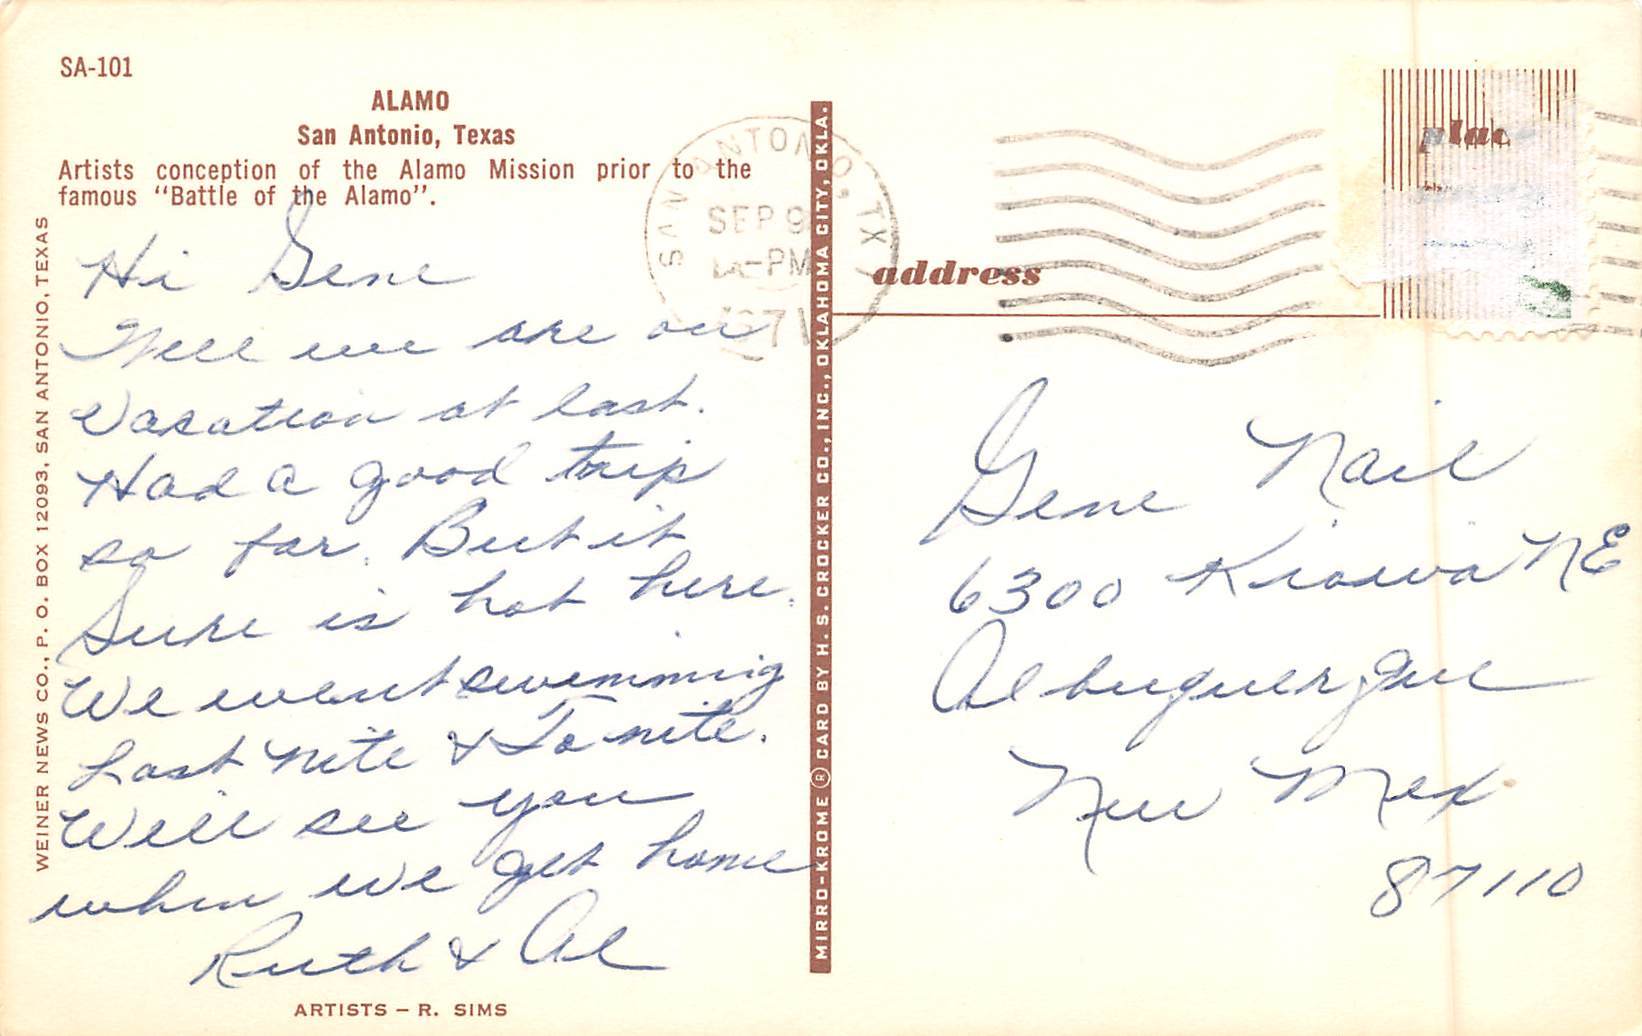 SA-101
ALAMO
San Antonio, Texas
Artists conception of the Alamo Mission prior to the
famous "Battle of the Alamo".
WEINER NEWS CO., P. O. BOX 12093, SAN ANTONIO, TEXAS
Hi Gene
Well we are on
Vacation at last.
Had a good trip
so far. But it
Sure is hot here.
We went swimming
Last Nite & To nite.
Will see you
when we get home
Ruth & Al
ARTISTS – R. SIMS
MIRRO-KROME ® CARD BY H. S. CROCKER CO., INC., OKLAHOMA CITY, OKLA.
SAN ANTONIO, TX
SEP 9
PM
1971
place
address
Gene Nail
6300 Kiowa NE
Albuquerque
New Mex
87110